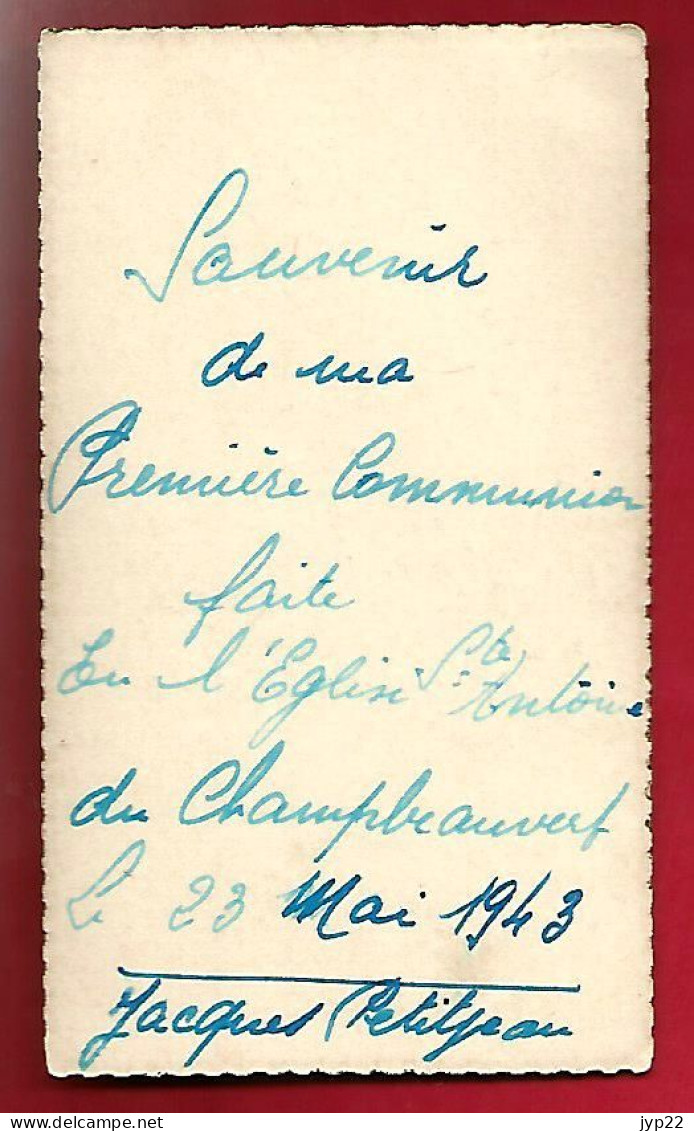 Souvenir
de ma
Première Communion
faite
En l'Eglise Ste Antoine
du Champbeauvert
Le 23 Mai 1943
Jacques Petitjean
jyp22